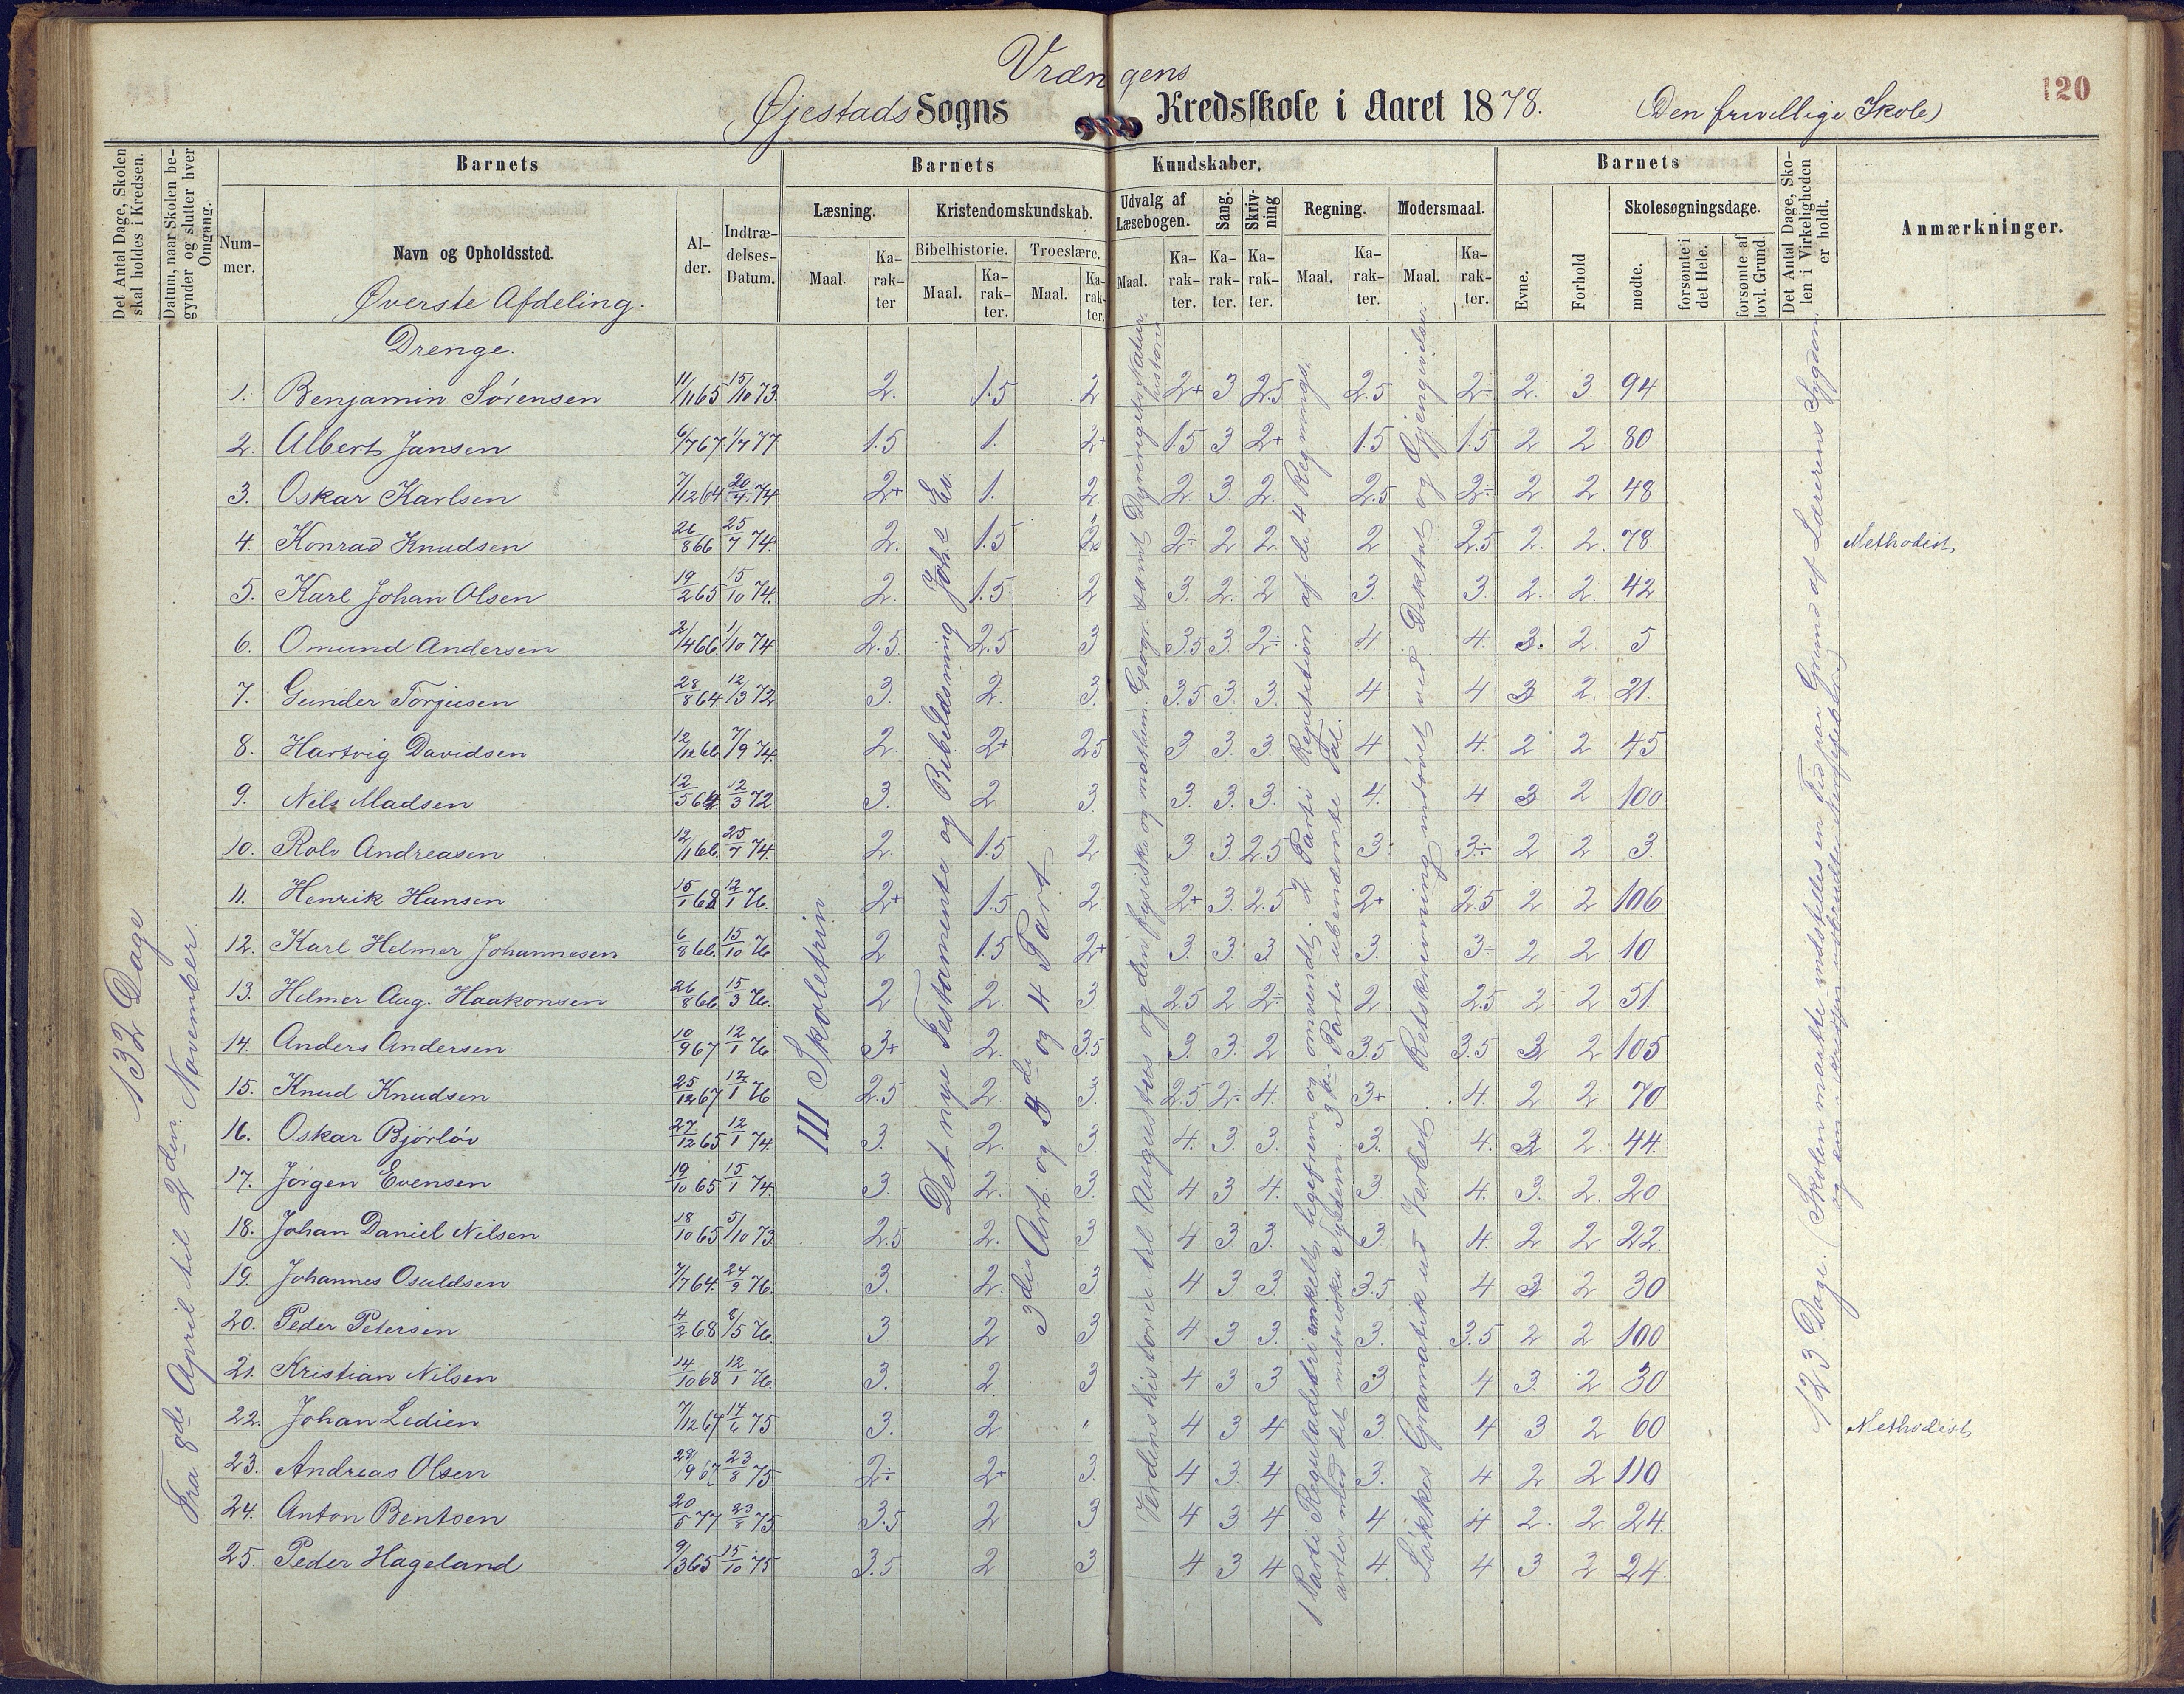 Vrængens
Øjestads Sogns Kredsskole i Aaret 1878. (Den frivillige Skole)
120
Det Antal Dage, Skolen skal holdes i Kredsen.
Datum, naar Skolen begynder og slutter hver Omgang.
Barnets
Barnets Kundskaber.
Barnets
Det Antal Dage, Skolen i Virkeligheden er holdt.
Anmærkninger.
Nummer.
Navn og Opholdssted.
Alder.
Indtrædelses-Datum.
Læsning.
Kristendomskundskab.
Udvalg af Læsebogen.
Sang.
Skrivning
Regning.
Modersmaal.
Evne.
Forhold
Skolesøgningsdage.
Bibelhistorie.
Troeslære.
Maal. Karakter Maal. Karakter. Maal. Karakter.
Maal. Karakter. Karakter. Karakter. Maal. Karakter. Maal. Karakter.
mødte.
forsømte i det Hele.
forsømte af lovl. Grund.
Øverste Afdeling.
Drenge.
1. Benjamin Sørensen 11/11 65 15/10 73. 2. 1.5 2 2+ 3 2.5 2.5 2÷ 2. 3 94
2. Albert Jansen 6/7 67 1/7 77 1.5 1. 2+ 1.5 3 2+ 1.5 1.5 2 2 80
3. Oskar Karlsen 7/12 64 20/4 74 2+ 1. 2 2 3. 2. 2.5 2÷ 2 2 48
4. Konrad Knudsen 26/8 66 25/7 74. 2. 1.5 2÷ 2 2. 2 2.5 2. 2. 78 Methodist
5. Karl Johan Olsen 19/2 65 15/10 74. 2. 1.5 2 3. 2. 2 3. 3. 2. 2. 42
6. Omund Andersen 2/4 66 1/10 74 2.5. 2.5 3 3.5 3. 2÷ 4. 4. 3. 2. 5
7. Gunder Torjusen 28/8 64. 12/3 72 3. 2. 3. 3.5 3. 3. 4 4 3 2. 21.
8. Hartvig Davidsen 12/12 66. 7/9 74. 2. 2+ 2.5 3 3. 3. 4 4. 2 2 45
9. Nels Madsen 12/5 64. 12/3 72 3. 2. 3. 3. 3. 3. 4. 4 3 2 100
10. Rolv Andreasen 12/11 66. 25/7 74. 2. 1.5 2 3 3. 2.5 3 3÷ 2 2 3.
11. Henrik Hansen 15/1 68 12/1 76. 2+ 1.5 2. 2+ 3. 2.5 2+ 2.5 2 2 106
12. Karl Helmer Johannesen 6/8 66. 15/10 76 2 1.5 2+ 3. 3. 3 3. 3÷ 2 2 10
13. Helmer Aug. Haakonsen 26/8 66. 15/3 76. 2 2. 3 2.5 2 2÷ 2 2.5 2 2 51.
14. Anders Andersen 10/9 67 12/1 76. 3+ 2. 3.5 3. 3. 2 3.5 3.5 3 2 105
15. Knud Knudsen 25/12 67 12/1 76 2.5 2. 3. 2.5 2÷ 4. 3+ 4. 2 2 70
16. Oskar Bjørløv 27/12 65 12/1 74. 3. 2. 3. 4. 3. 3. 3. 4. 3 2. 44.
17. Jørgen Evensen 19/10 65 15/1 74. 3. 2. 3. 4 3 4. 3 4. 3. 2. 20
18. Johan Daniel Nilsen 18/10 65 5/10 73. 2.5 2. 3 4 3 3. 3. 4. 2 2 22.
19. Johannes Osuldsen 7/7 64. 24/9 76. 3. 2. 3 4 3 3. 3.5 4 3 2 30
20. Peder Petersen 4/2 68 8/5 76. 3 2 3 4 3 3. 3. 3.5 2 2 100
21. Kristian Nilsen 14/10 68 12/1 76. 3. 2 3 4 3 3 3 4 3. 2 30
22. Johan Ledien 7/12 67 14/6 75 3. 2 " 4 3 4 3. 4 3 2 60 Methodist
23. Andreas Olsen 28/9 67. 23/8 75 2÷ 2+ 3. 4 3. 4 3. 4 2 2 110
24. Anton Bentsen 20/5 77 23/8 75 3.5 2 3 4 3 4 4 4 2. 2 24
25. Peder Hageland 9/3 65 15/10 75 3.5 2 3 4 3 4 4. 4 3 2 24.
132 Dage
Fra 8de April til 2den November.
III Skoletrin.
Det nye Testamente og Bibellæsning Johs Ev.
3die Art. og 3de og 4 Part
Verdenshistorie til Augustus og den fysiske og mathem. Geogr. samt Dyrerigets Naturhistorie
1 Parti Reguladetri enkelt, ligefrem og omvendt. 2 Parti Repetition af de 4 Regnings-
arter med det metriske System. 3die Parti ubenævnte Tal.
Løkkes Gramatik ud Verbet. Retskrivning indøvet ved Diktat og Gjengivelser
123 Dage. (Skolen maatte indstilles en Tid paa Grund af Lærerens Sygdom